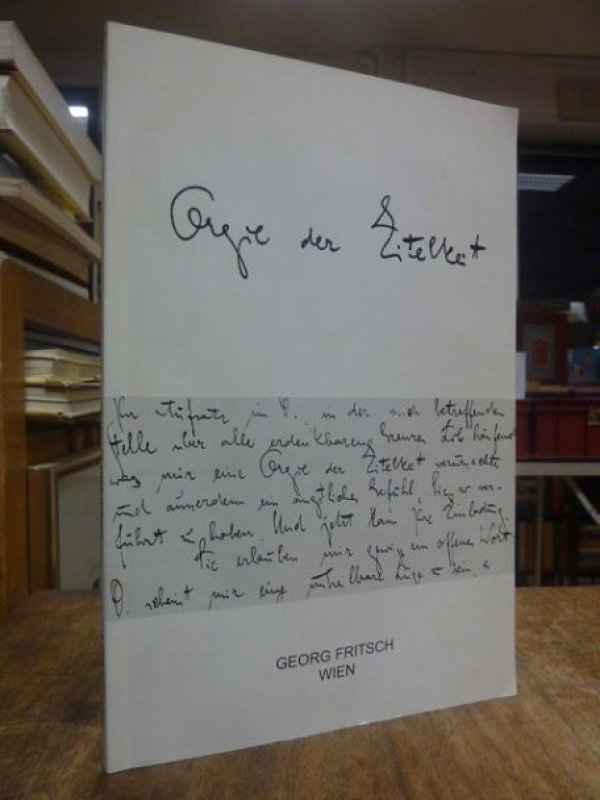 Orgie der Eitelkeit
Ihr Aufsatz im O. in der mich betreffenden
Stelle über alle erdenkbaren Grenzen Lob häufend
was mir eine Orgie der Eitelkeit verursachte
und ausserdem ein ängstliches Gefühl, Sie so ver-
führt zu haben. Und jetzt kam Ihre Einladung.
Sie erlauben mir gewiss ein offenes Wort
O. scheint mir eine unheilbare Lüge zu sein,
GEORG FRITSCH
WIEN